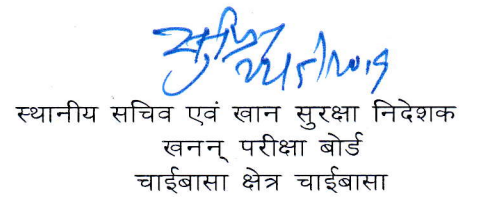 स्थानीय सचिव एवं खान सुरक्षा निदेशक
खनन् परीक्षा बोर्ड
चाईबासा क्षेत्र चाईबासा